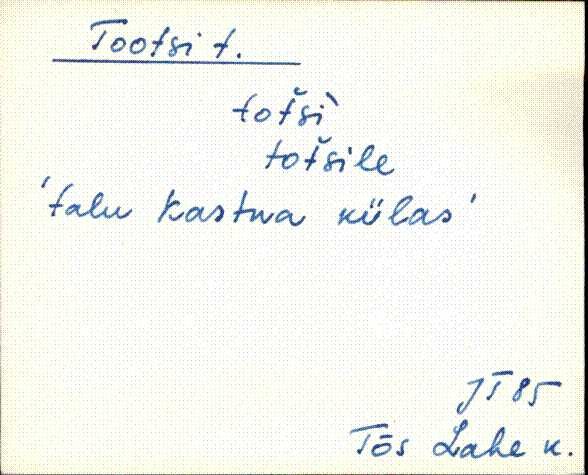 Tootsi t.
totši`
totšile
'talu Kastna külas'
JT 85
Tõs Lahe k.